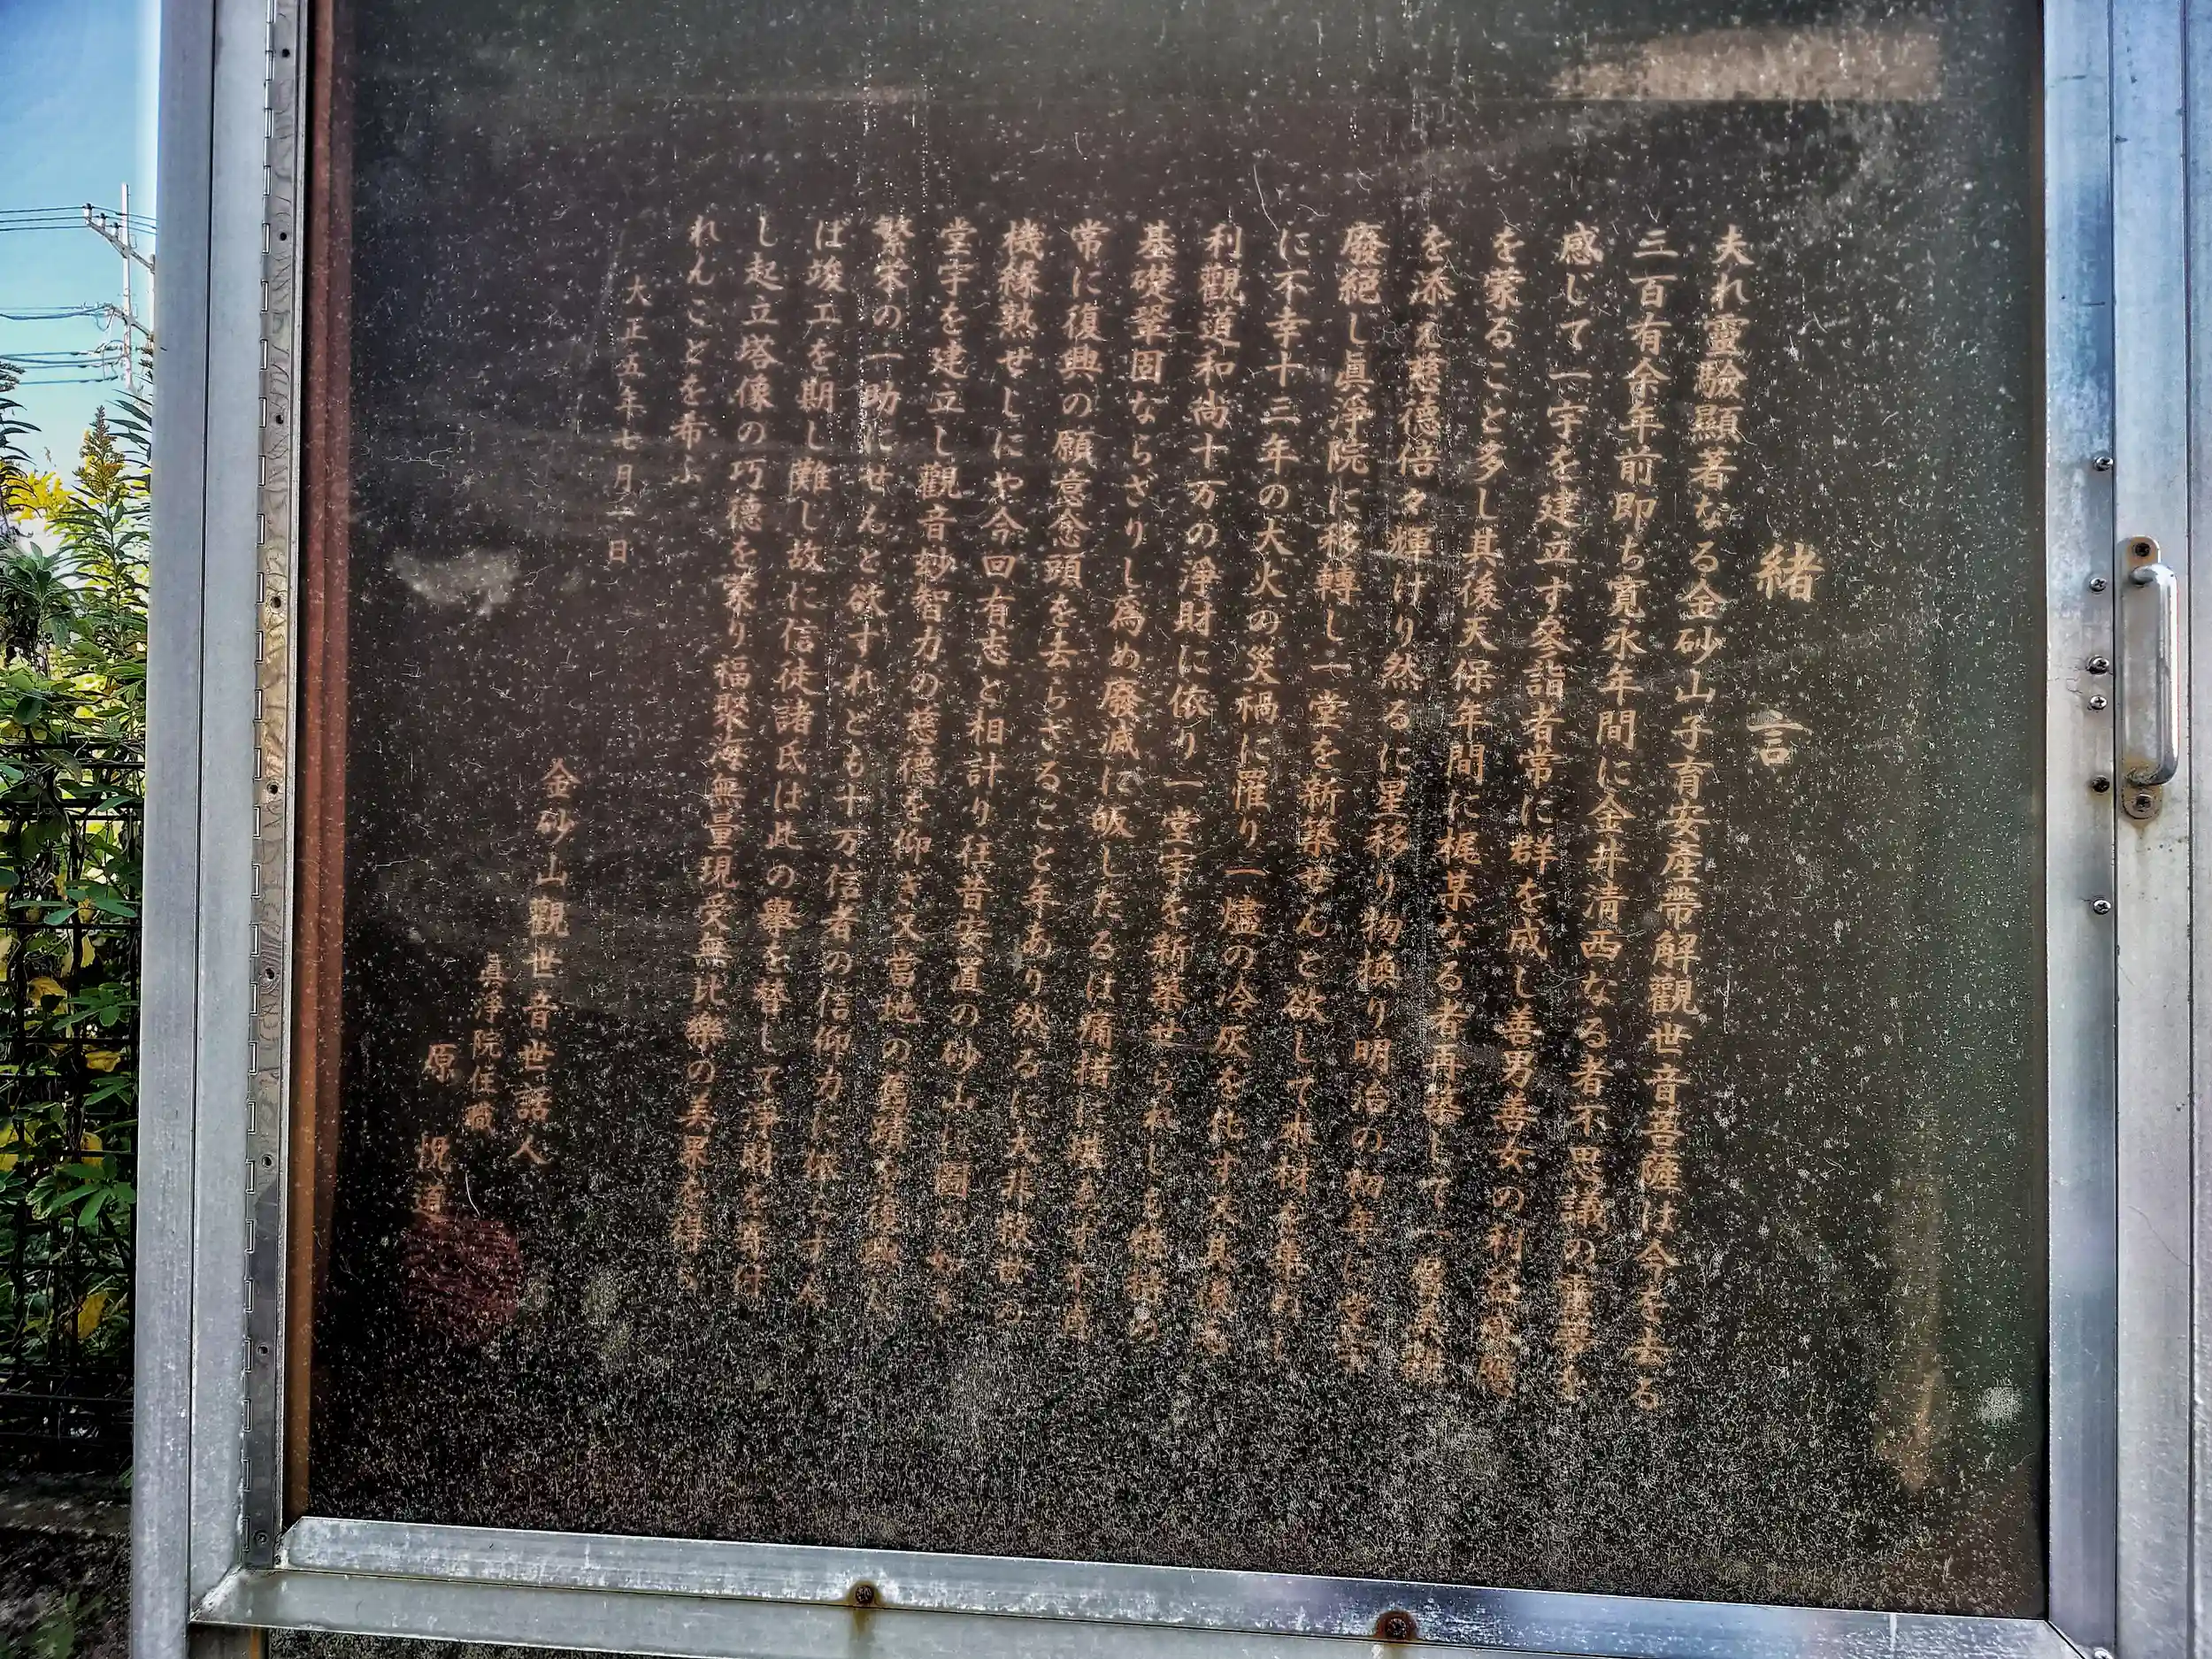 緒言
夫れ靈驗顯著なる金砂山子育安産帶解觀世音菩薩は今を去る
三百有余年前即ち寛永年間に金井清西なる者不思議の靈夢を
感じて一宇を建立す參詣者常に群を成し善男善女の利益感應
を蒙ること多し其後天保年間に梶某なる者再建して一層
を添え慈德倍々輝けり然るに星移り物換り明治の初年に
廢絕し眞浄院に移轉し一堂を新築せんと欲して木材を集めし
に不幸十三年の大火の災禍に罹り一燼の冷灰を化す
利觀道和尚十万の浄財に依り一堂宇を新築せられしも
基礎鞏固ならざりし為め廢滅に皈したるは痛惜に堪えず
常に復興の願意念頭を去らざること年あり然るに大非救世の
機緣熟せしにや今回有志と相計り往昔安置の砂山に
堂宇を建立し觀音妙智力の慈德を仰ぎ又當地の舊蹟
繁栄の一助にせんと欲すれども十万信者の信仰力に
ば竣工を期し難し故に信徒諸氏は此の擧を賛して浄財を寄付
し起立塔像の巧德を蒙り福聚海無量現受無比樂の美果を得
れんことを希ふ
大正五年七月一日
金砂山觀世音世話人
眞淨院住職
原 悦道